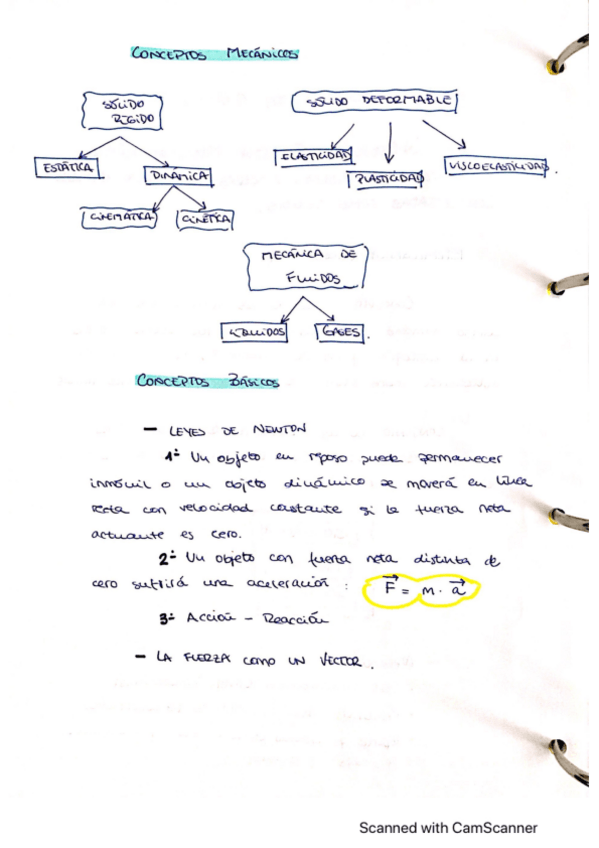 CONCEPTOS MECÁNICOS
SÓLIDO
RÍGIDO
SÓLIDO DEFORMABLE
ESTÁTICA
DINÁMICA
ELASTICIDAD
PLASTICIDAD
VISCOELASTICIDAD.
CINEMÁTICA
CINÉTICA
MECÁNICA DE
FLUIDOS
LÍQUIDOS
GASES.
CONCEPTOS BÁSICOS
- LEYES DE NEWTON
1ª Un objeto en reposo puede permanecer
inmóvil o un objeto dinámico se moverá en línea
recta con velocidad constante si la fuerza neta
actuante es cero.
2ª Un objeto con fuerza neta distinta de
cero sufrirá una aceleración : F⃗ = m · a⃗
3ª Acción - Reacción
- LA FUERZA COMO UN VECTOR.
Scanned with CamScanner